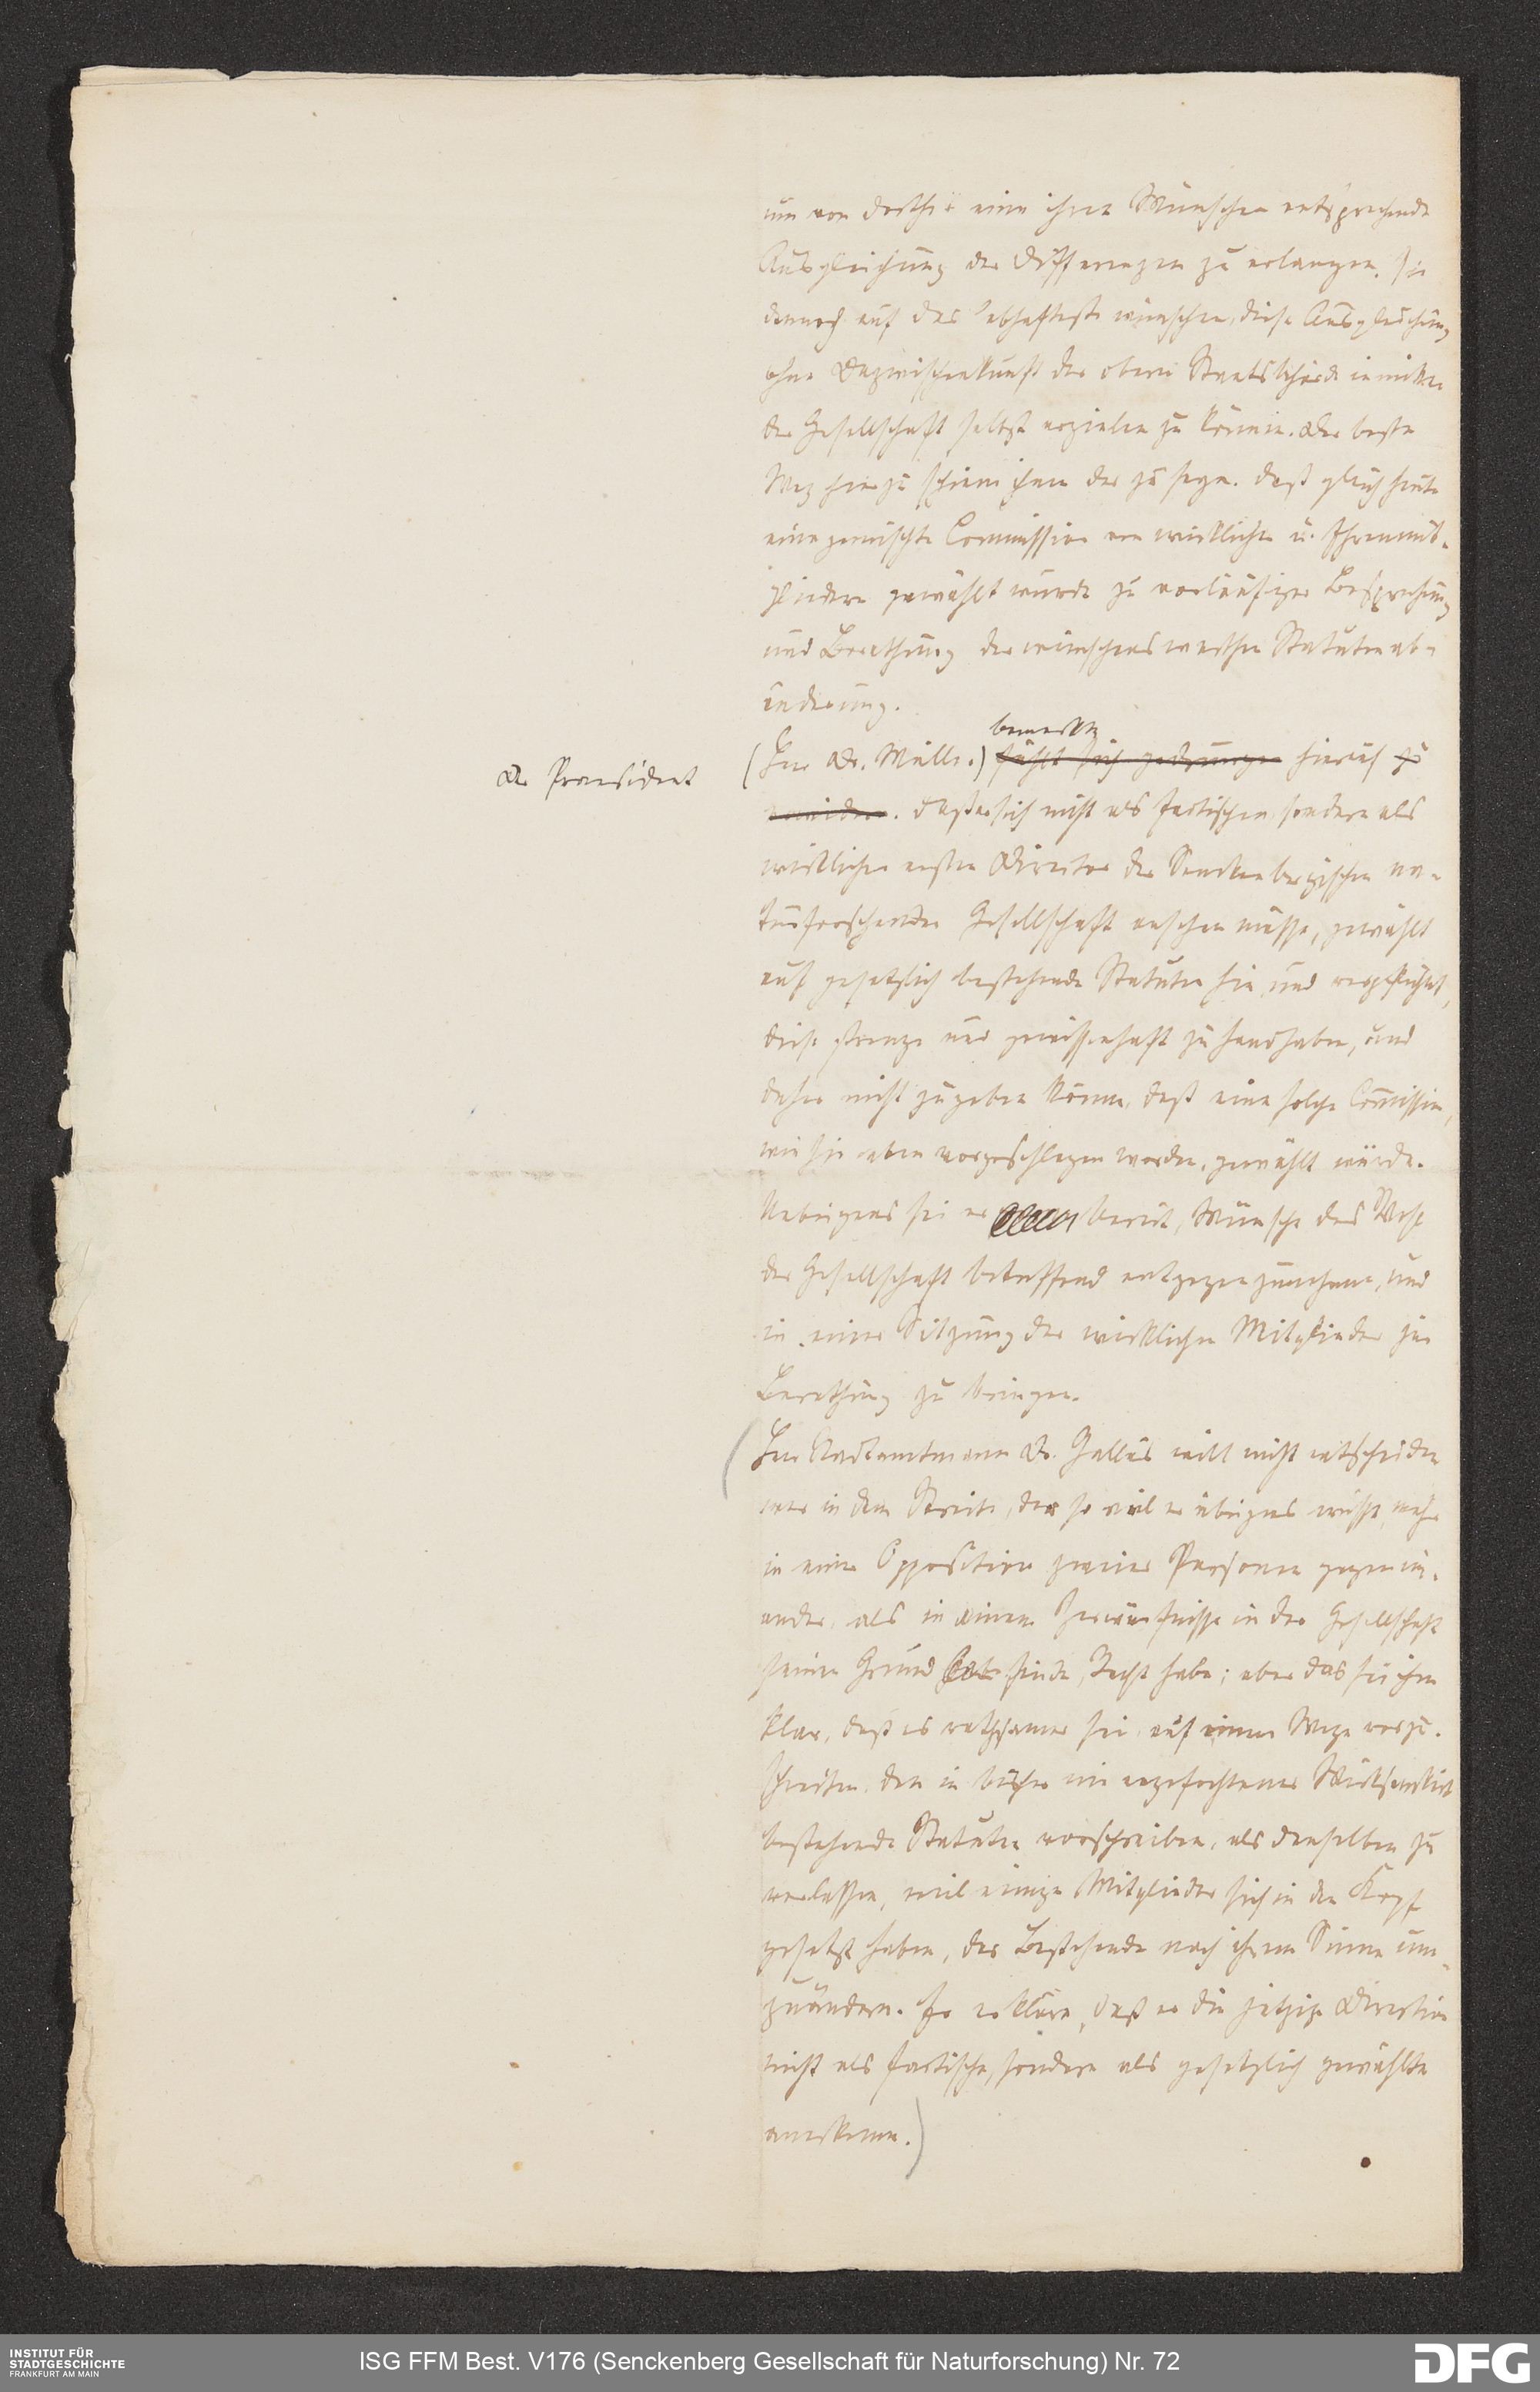 um von dorther eine ihren Wünschen entsprechende
Ausgleichung der Differenzen zu erlangen. Sie
dennoch auf das lebhafteste wünschen, diese Ausgleichung
ohne Dazwischenkunft der obern Staatsbehörde inmitten
der Gesellschaft selbst erzielen zu können. Der beste
Weg hierzu schien ihnen der zu seyn. daß gleich heute
eine gemischte Commission von wirklichen u. Ehrenmit-
gliedern gewählt würde zu vorläufiger Besprechung
und Berathung der wünschenswerthen Statutenab-
änderung.
bemerkte
Der Praesident
(Herr Dr. Müller.) fühlt sich gedrungen hierauf zu
erwidern. daß er sich nicht als factischen, sondern als
wirklichen ersten Director der Senckenbergischen na-
turforschenden Gesellschaft ansehen müsse, gewählt
auf gesetzlich bestehende Statuten hin, und verpflichtet,
diese strenge und gewissenhaft zu handhaben, und
daher nicht zugeben könne, daß eine solche Commission,
wie sie eben vorgeschlagen worden, gewählt würde.
Uebrigens sei er bereit, Wünsche das Wohl
der Gesellschaft betreffend entgegenzunehmen, und
in einer Sitzung der wirklichen Mitglieder zur
Berathung zu bringen.
(Herr Stadtamtmann Dr. Gallus will nicht entscheiden
wer in dem Streite, der so viel er übrigens wisse, mehr
in einer Opposition zweier Personen gegenein-
ander, als in einem Zerwürfnisse in der Gesellschaft
seinen Grund finde, Recht habe; aber das sei ihm
klar, daß es rathsamer sei, auf einem Wege vorzu-
schreiten, den in bisher nie angefochtener Wirksamkeit
bestehende Statuten vorschreiben, als denselben zu
verlassen, weil einige Mitglieder sich in den Kopf
gesetzt haben, das Bestehende nach ihrem Sinne um-
zuändern. Er erkläre, daß er die jetzige Direction
nicht als factische, sondern als gesetzlich gewählte
anerkenne.)
INSTITUT FÜR
STADTGESCHICHTE
FRANKFURT AM MAIN
ISG FFM Best. V176 (Senckenberg Gesellschaft für Naturforschung) Nr. 72
DFG